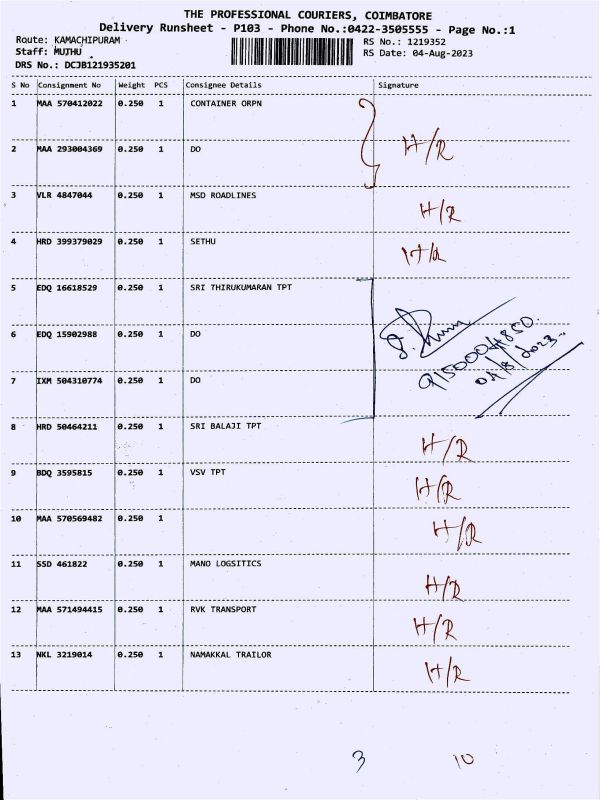 THE PROFESSIONAL COURIERS, COIMBATORE
Delivery Runsheet - P103 - Phone No.:0422-3505555 - Page No.:1
Route: KAMACHIPURAM RS No.: 1219352
Staff: MUTHU RS Date: 04-Aug-2023
DRS No.: DCJB121935201
S No Consignment No Weight PCS Consignee Details Signature
1 MAA 570412022 0.250 1 CONTAINER ORPN
2 MAA 293004369 0.250 1 DO H/R
3 VLR 4847044 0.250 1 MSD ROADLINES H/R
4 HRD 399379029 0.250 1 SETHU H/R
5 EDQ 16618529 0.250 1 SRI THIRUKUMARAN TPT
6 EDQ 15902988 0.250 1 DO
9150004850
04/8/2023
7 IXM 504310774 0.250 1 DO
8 HRD 50464211 0.250 1 SRI BALAJI TPT H/R
9 BDQ 3595815 0.250 1 VSV TPT H/R
10 MAA 570569482 0.250 1 H/R
11 SSD 461822 0.250 1 MANO LOGSITICS H/R
12 MAA 571494415 0.250 1 RVK TRANSPORT H/R
13 NKL 3219014 0.250 1 NAMAKKAL TRAILOR H/R
3 10